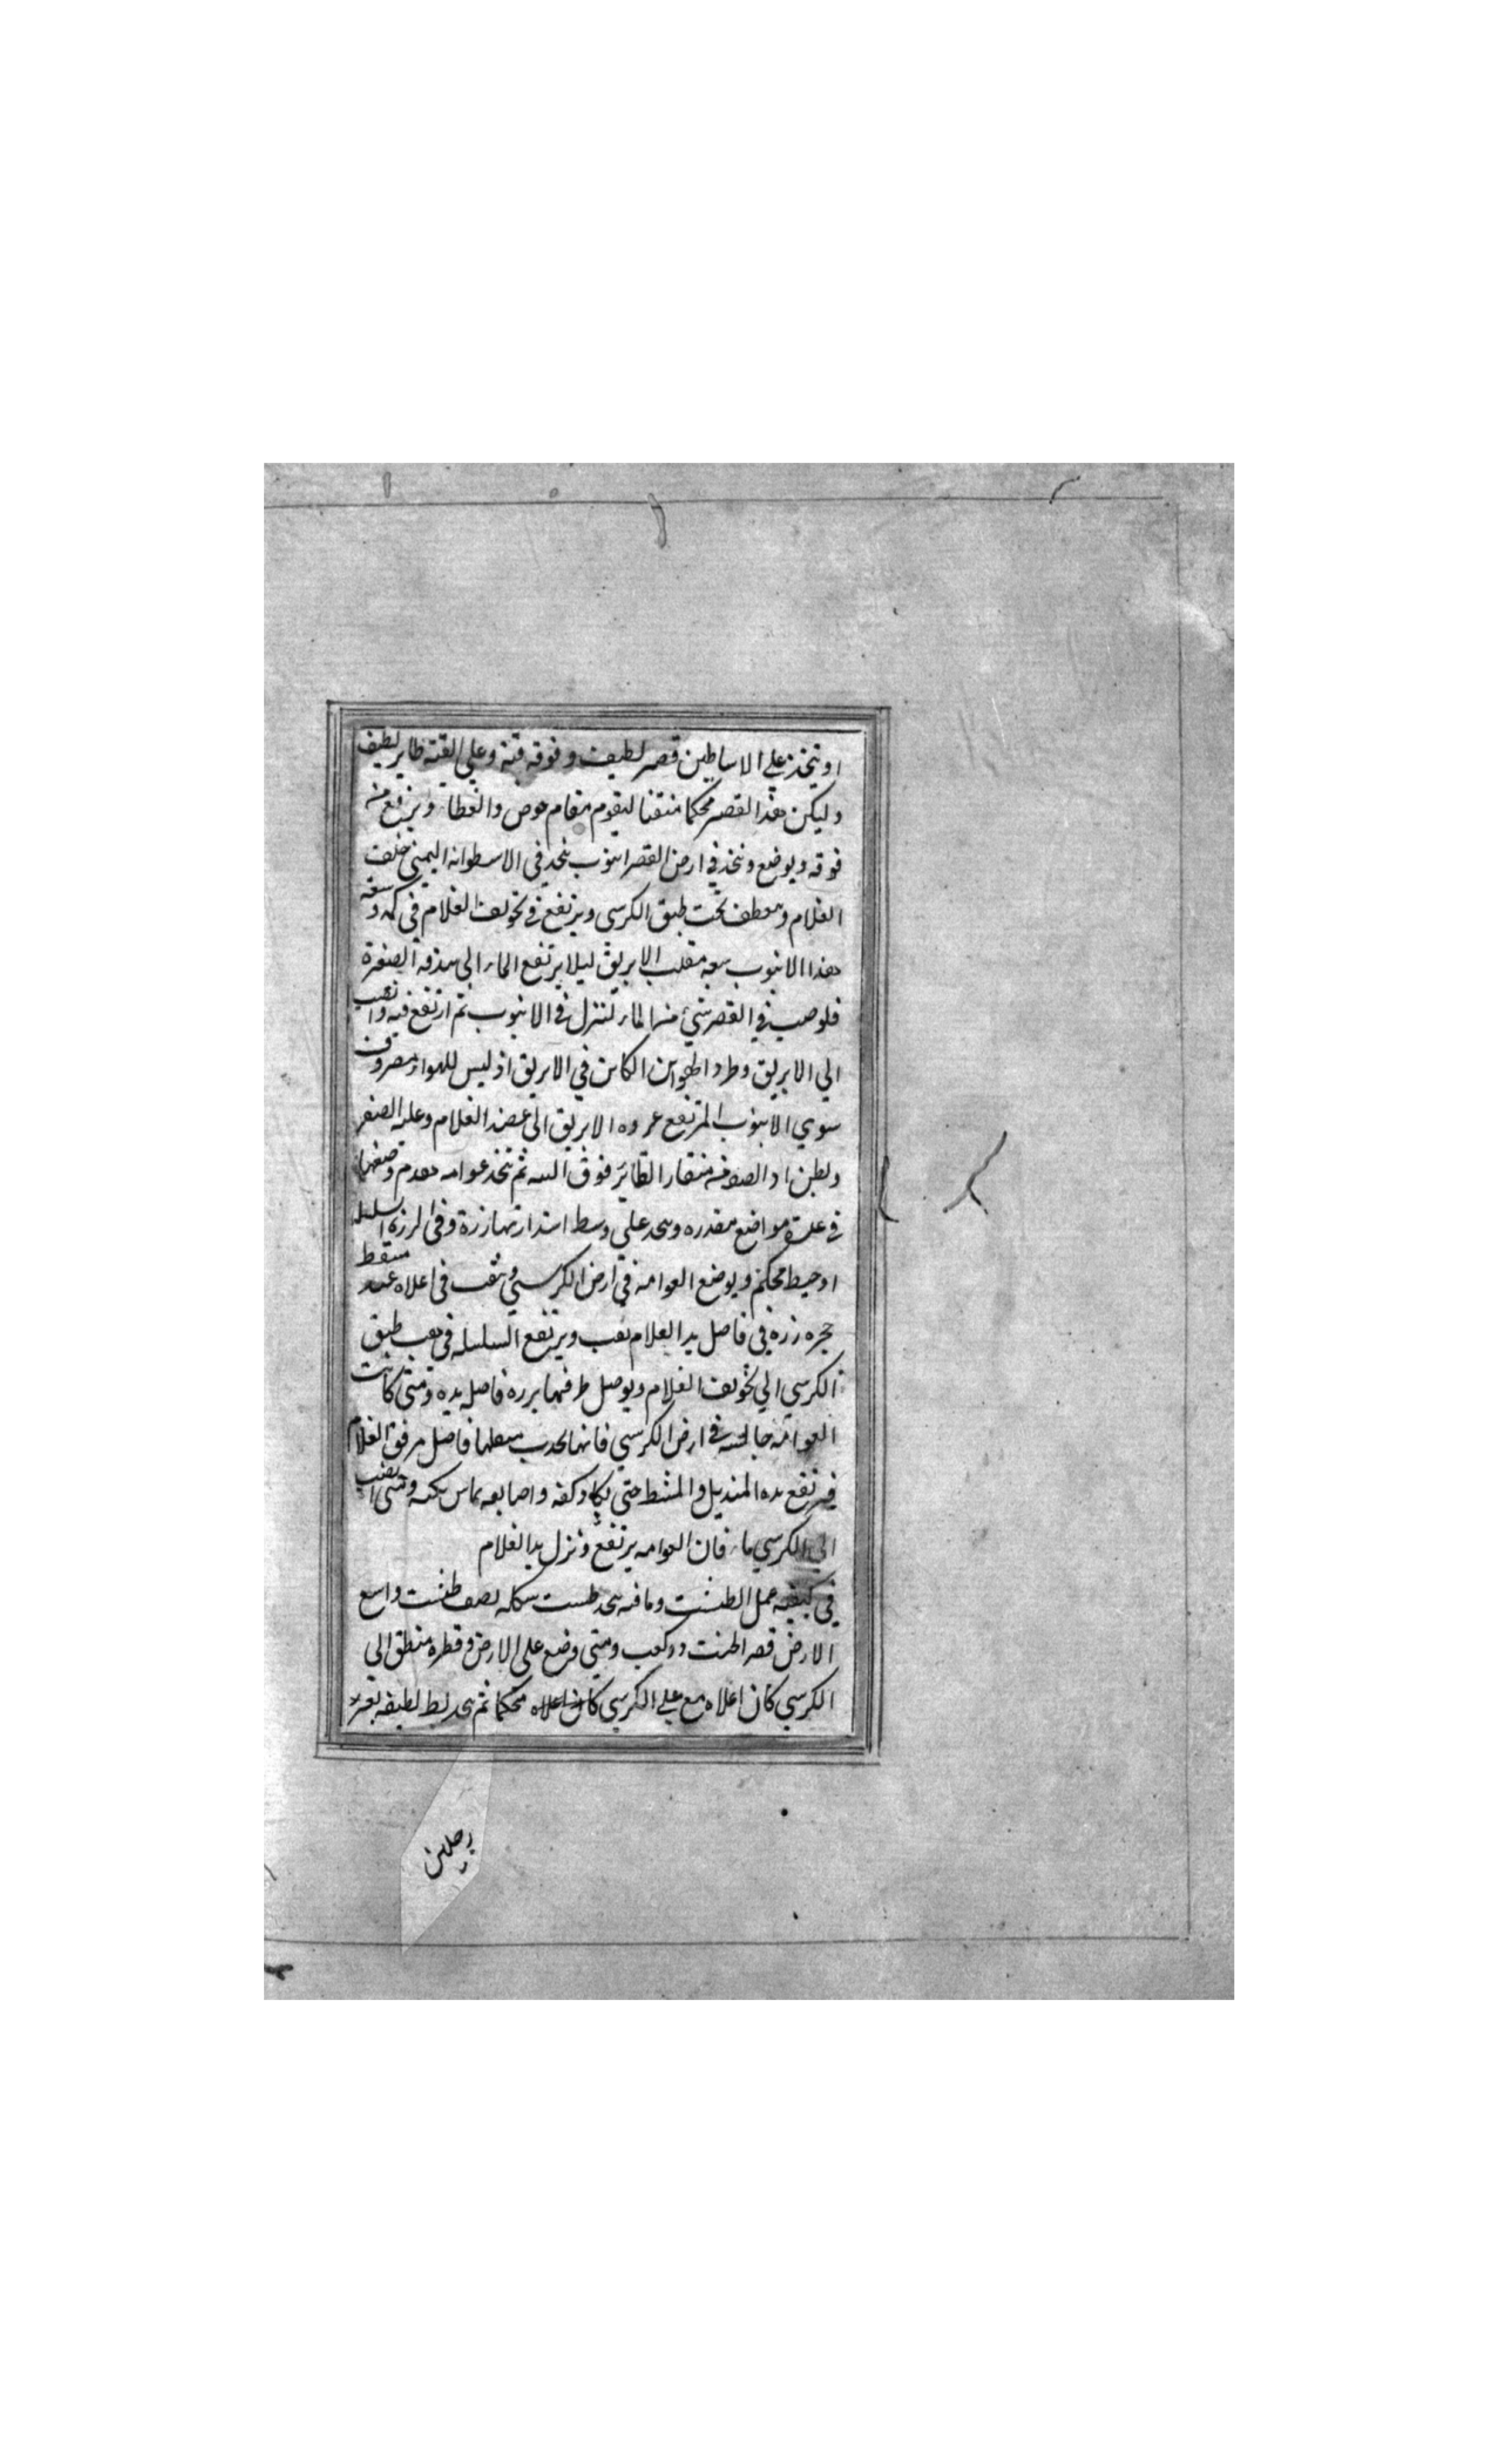 او يتخذ علي الاساطين قصر لطيف وفوقه قبة وعلي القبة طاير لطيف
وليكن هذا القصر محكما متقنا ليقوم مقام حوض والغطا ويرفع من
فوقه ويوضع ونخذ في ارض القصر انبوب ينحد في الاسطوانه اليمنى خلف
الغلام وينعطف تحت طبق الكرسي ويرتفع في تجويف الغلام في كمه وسعة
هذا الانبوب سعة مقلب الابريق ليلا يرتفع الماء الى بندقة الصفرة
فلو صب في القصر شئ من الماء لنزل في الانبوب ثم ارتفع فيه وانصب
الي الابريق وطرد الهوا من الكاين في الابريق اذ ليس للهواء مصروف
سوي الانبوب المرتفع عروه الابريق الى عضد الغلام وعليه الصفر
ولظن ان الصوت منقار الطاير فوق القبه ثم نتخذ عوامه تقدم وصفها
في عدة مواضع مقدره وتتخذ على وسط استدارتها زرة وفي الرزة سلسله
او خيط محكم ويوضع العوامه في ارض الكرسي ويثقب في اعلاه عند مسقط
حجره رزة في فاصل يد الغلام ثقب ويرتفع السلسله في ثقب طبق
الكرسي الي تجويف الغلام ويوصل طرفها برزة فاصل يده ومتى كانت
العوامه جالسه في ارض الكرسي فانها تجذب بثقلها فاصل مرفق الغلام
فيرتفع يده المنديل والمشط حتى يكاد كفه واصابعه تماس كتفه ومتى انصب
الي الكرسي ماء فان العوامه يرتفع وتنزل يد الغلام
في كيفيه عمل الطشت وما فيه يتخذ طست شكله نصف طشت واسع
الارض قصير الطشت ذو كعب ومتى وضع على الارض وقطره منطق الي
الكرسي كان اعلاه مع علي الكرسي كان اعلاه محكما ثم يتخذ بط لطيفه بقدر
رجلين